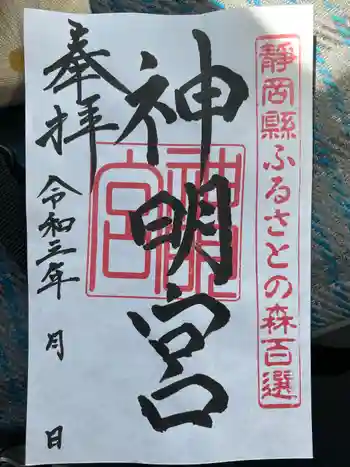 静岡縣ふるさとの森百選
神明宮
奉拝
令和三年 月 日
神明宮